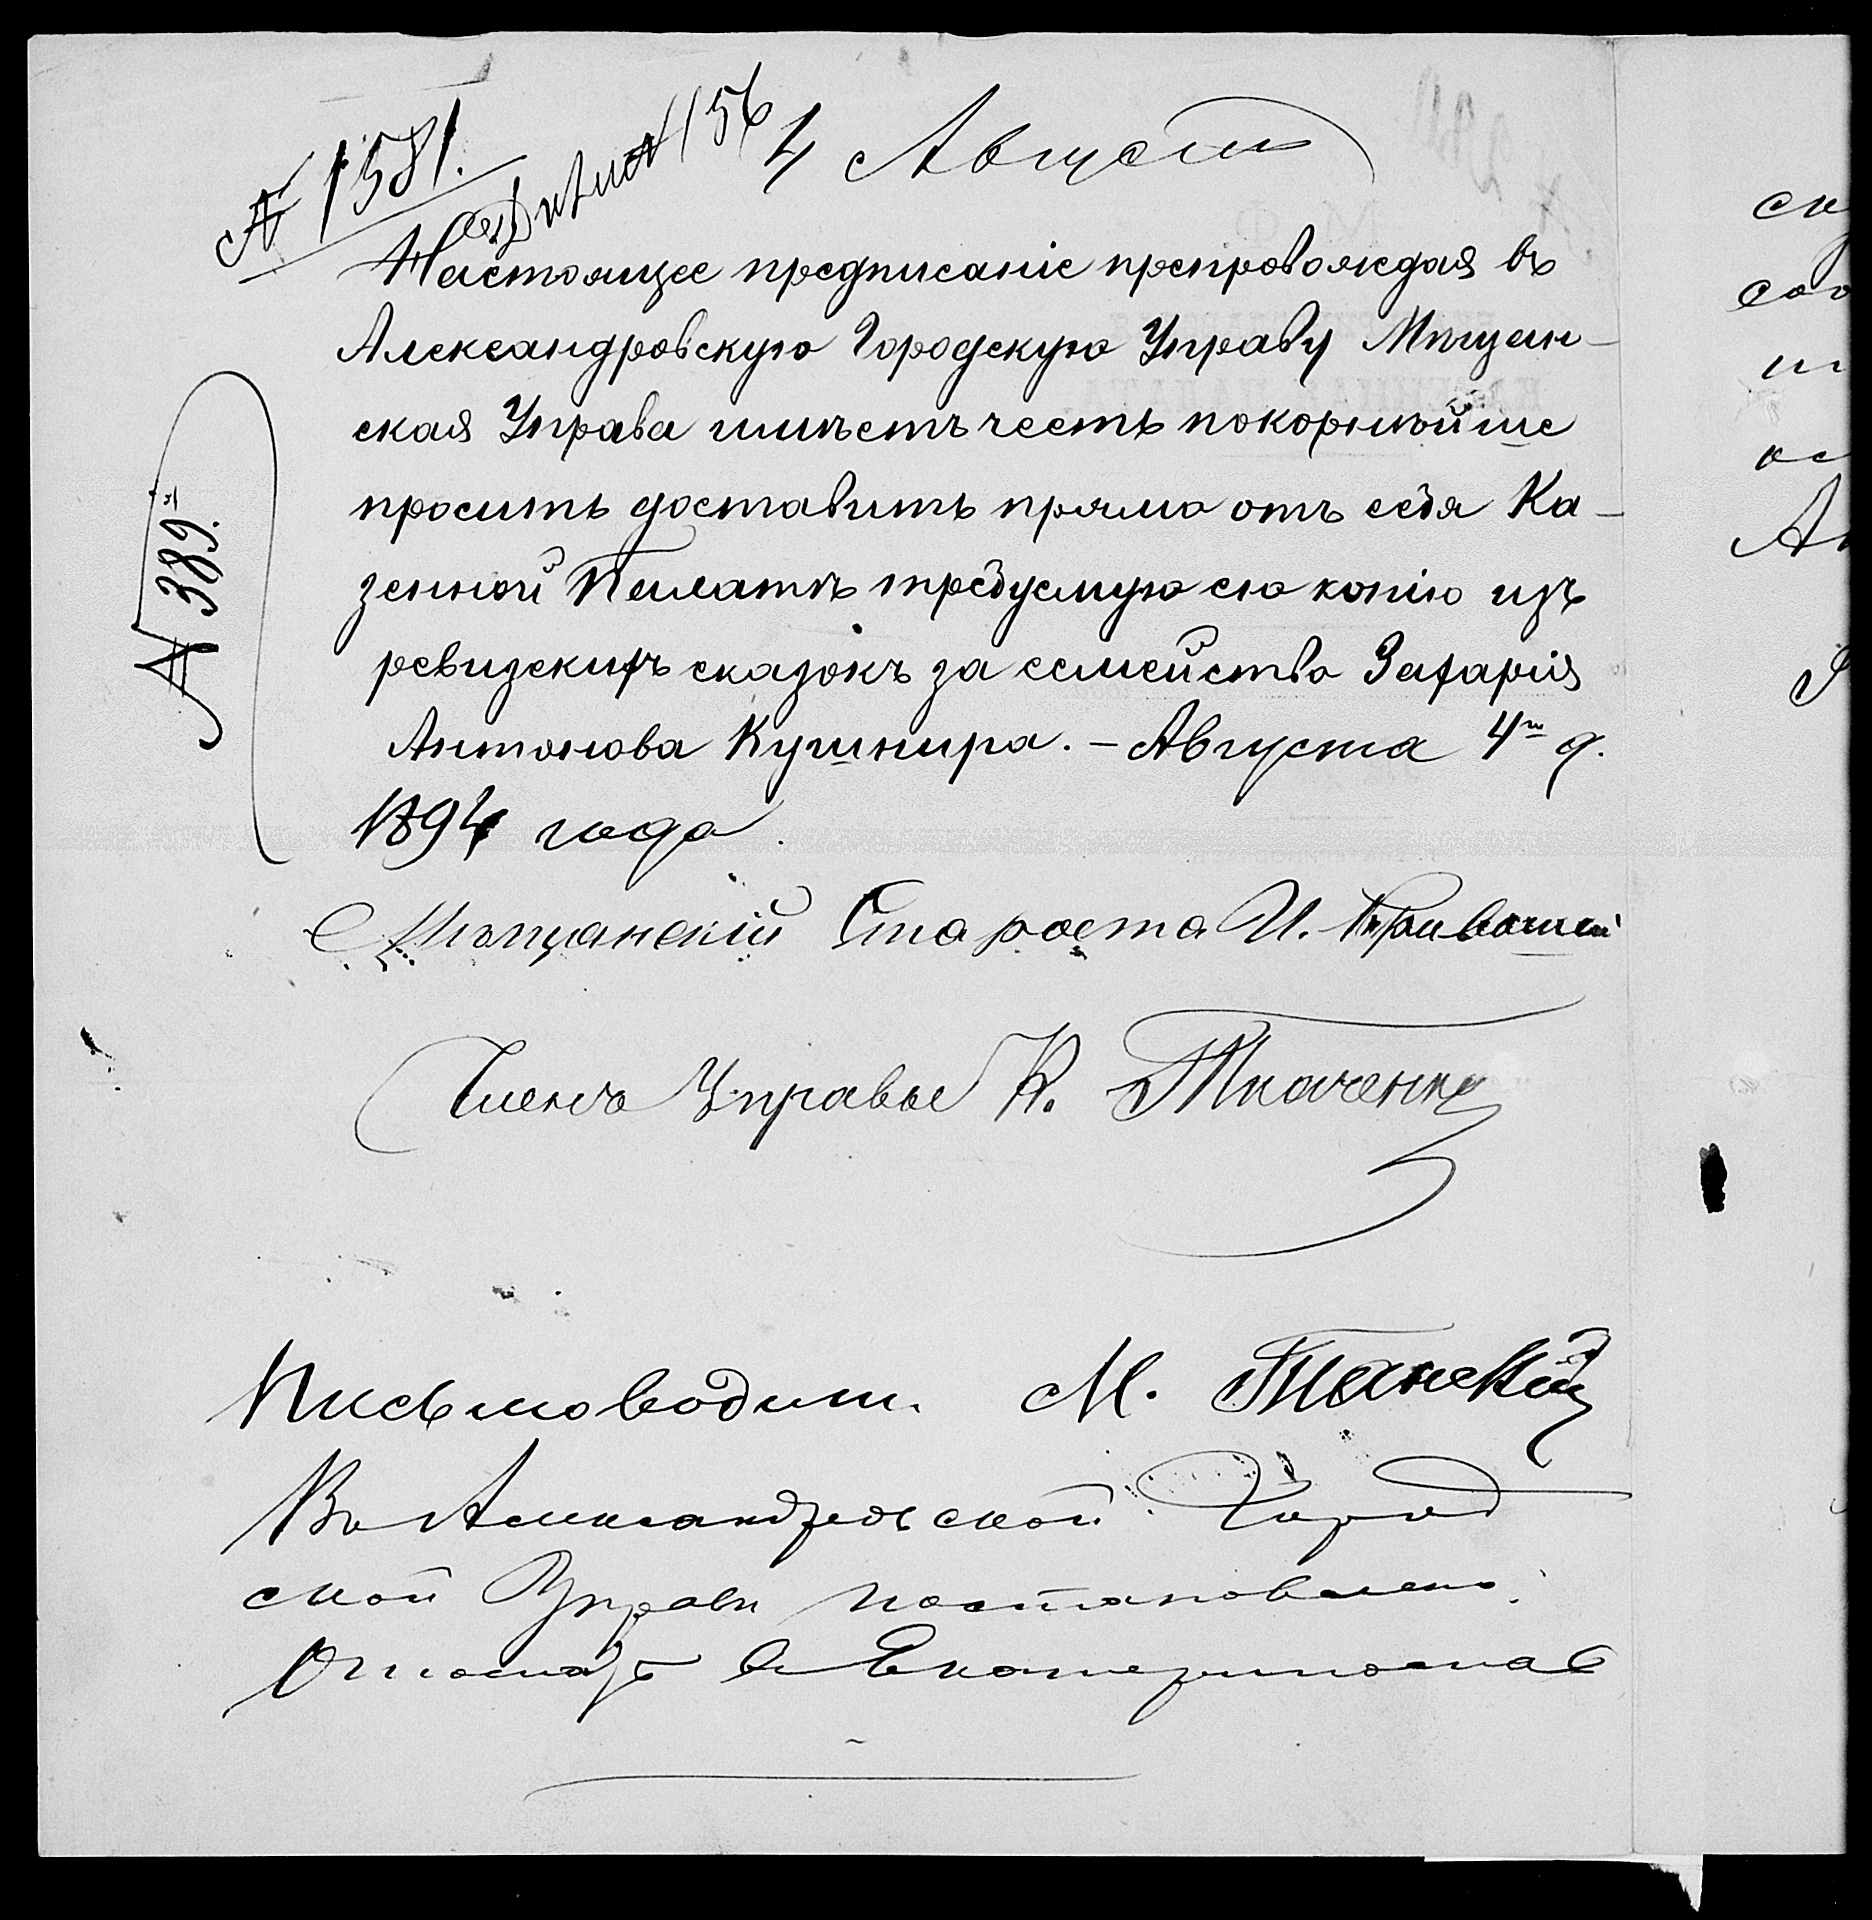 № 1581.
№ 156
4 Август
Настоящее предписаніе препровождая въ
Александровскую Городскую Управу Мѣщан-
ская Управа имѣетъ честь покорнѣйше
просить доставить прямо отъ себя Ка-
зенной Палатѣ требуемую ею копію изъ
ревизскихъ сказокъ за семейство Захарія
Антонова Кушнира. – Августа 4го д.
1894 года.
№ 389.
Мѣщанскій Староста И.
Членъ Управы К. Ткаченко
Письмоводит. М.
Въ Александровской Город
ской Управѣ постановлено:
въ Екатеринослав